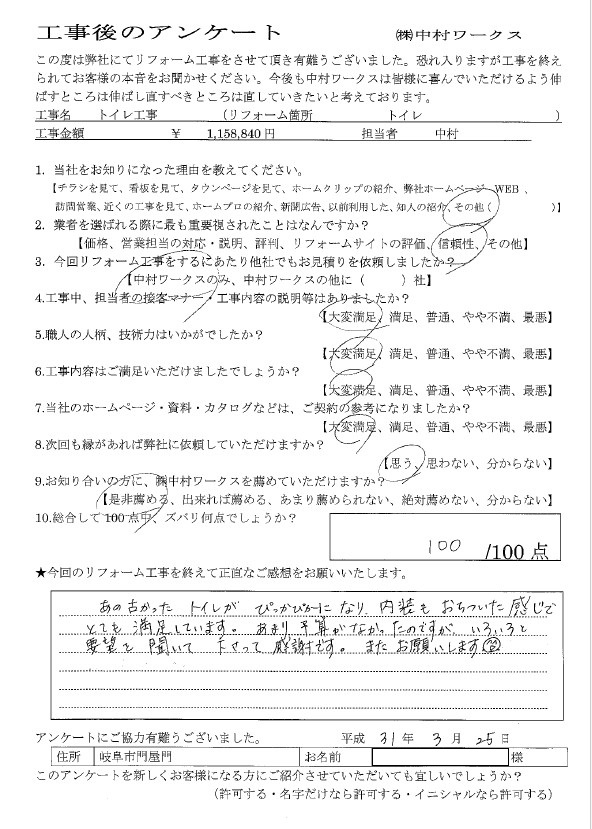 工事後のアンケート　㈱中村ワークス
この度は弊社にてリフォーム工事をさせて頂き有難うございました。恐れ入りますが工事を終え
られてお客様の本音をお聞かせください。今後も中村ワークスは皆様に喜んでいただけるよう伸
ばすところは伸ばし直すべきところは直していきたいと考えております。
工事名　トイレ工事　（リフォーム箇所　トイレ　）
工事金額　￥　1,158,840円　担当者　中村
1. 当社をお知りになった理由を教えてください。
【チラシを見て、看板を見て、タウンページを見て、ホームクリップの紹介、弊社ホームページ、WEB、
訪問営業、近くの工事を見て、ホームプロの紹介、新聞広告、以前利用した、知人の紹介、その他（　）】
2. 業者を選ばれる際に最も重要視されたことはなんですか？
【価格、営業担当の対応・説明、評判、リフォームサイトの評価、信頼性、その他】
3. 今回リフォーム工事をするにあたり他社でもお見積りを依頼しましたか？
【中村ワークスのみ、中村ワークスの他に（　）社】
4.工事中、担当者の接客マナー・工事内容の説明等はありましたか？
【大変満足、満足、普通、やや不満、最悪】
5.職人の人柄、技術力はいかがでしたか？
【大変満足、満足、普通、やや不満、最悪】
6.工事内容はご満足いただけましたでしょうか？
【大変満足、満足、普通、やや不満、最悪】
7.当社のホームページ・資料・カタログなどは、ご契約の参考になりましたか？
【大変満足、満足、普通、やや不満、最悪】
8.次回も縁があれば弊社に依頼していただけますか？
【思う、思わない、分からない】
9.お知り合いの方に、㈱中村ワークスを薦めていただけますか？
【是非薦める、出来れば薦める、あまり薦められない、絶対薦めない、分からない】
10.総合して100点中、ズバリ何点でしょうか？
100 /100点
★今回のリフォーム工事を終えて正直なご感想をお願いいたします。
あの古かった トイレが ぴっかぴかになり、内装も おちついた感じで
とても 満足しています。 あまり 予算がなかったのですが、いろいろと
要望を 聞いて 下さって 感謝です。 また お願いします
アンケートにご協力有難うございました。　平成 31年 3月 25日
住所　岐阜市門屋門　お名前　様
このアンケートを新しくお客様になる方にご紹介させていただいても宜しいでしょうか？
（許可する・名字だけなら許可する・イニシャルなら許可する）